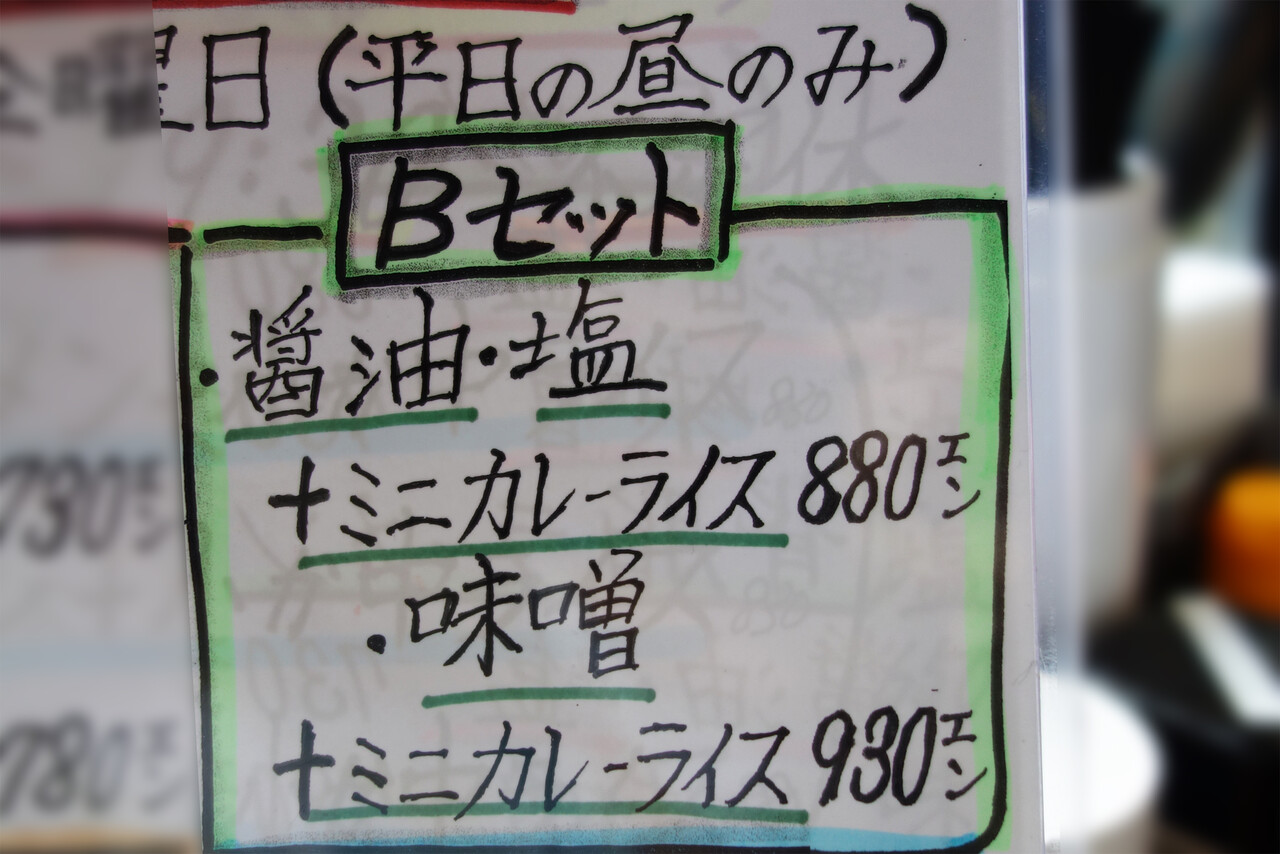 曜日(平日の昼のみ)
Bセット
・醤油・塩
+ミニカレーライス 880エン
・味噌
+ミニカレーライス 930エン
730エン
780エン